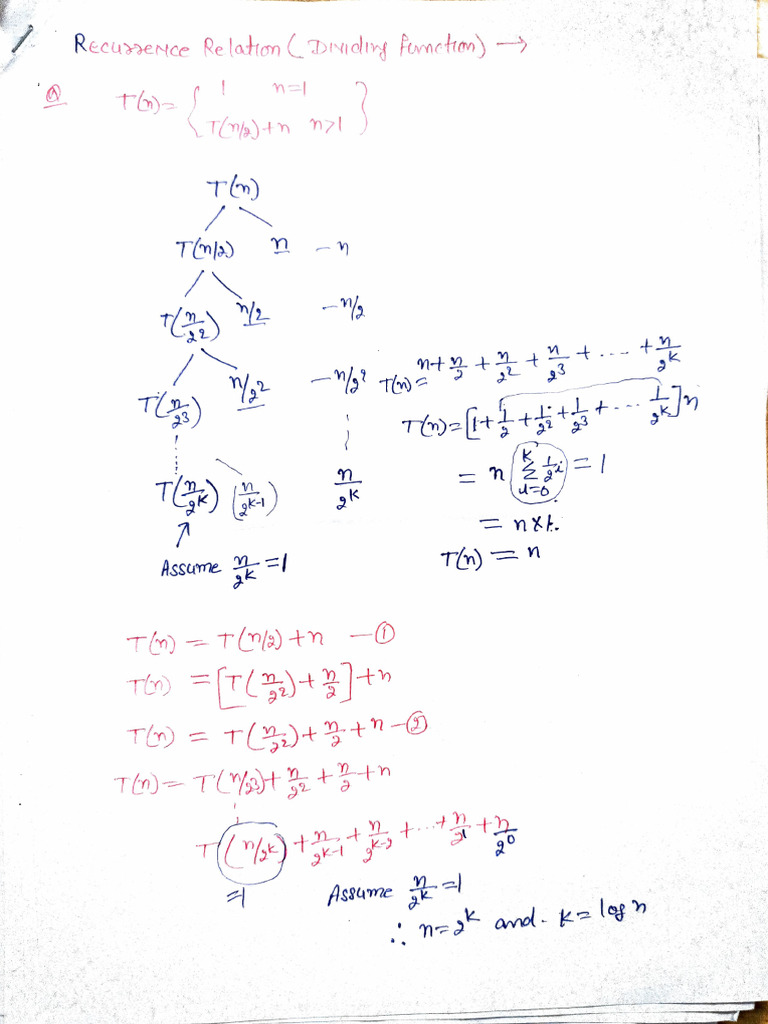 Recurrence Relation (Dividing Function) →
① T(n) = { 1 n=1
T(n/2)+n n>1 }
T(n)
T(n/2) n – n
T(n/2²) n/2 – n/2
T(n/2³) n/2² – n/2²
T(n/2ᵏ) (n/2ᵏ⁻¹) n/2ᵏ
Assume n/2ᵏ = 1
T(n) = n + n/2 + n/2² + n/2³ + .... + n/2ᵏ
T(n) = [1 + 1/2 + 1/2² + 1/2³ + ... 1/2ᵏ] n
= n Σ (i=0 to k) 1/2ⁱ = 1
= n × 1.
T(n) = n
T(n) = T(n/2) + n — ①
T(n) = [T(n/2²) + n/2] + n
T(n) = T(n/2²) + n/2 + n – ②
T(n) = T(n/2³) + n/2² + n/2 + n
T(n/2ᵏ) + n/2ᵏ⁻¹ + n/2ᵏ⁻² + ... + n/2¹ + n/2⁰
=1 Assume n/2ᵏ = 1
∴ n = 2ᵏ and k = log n